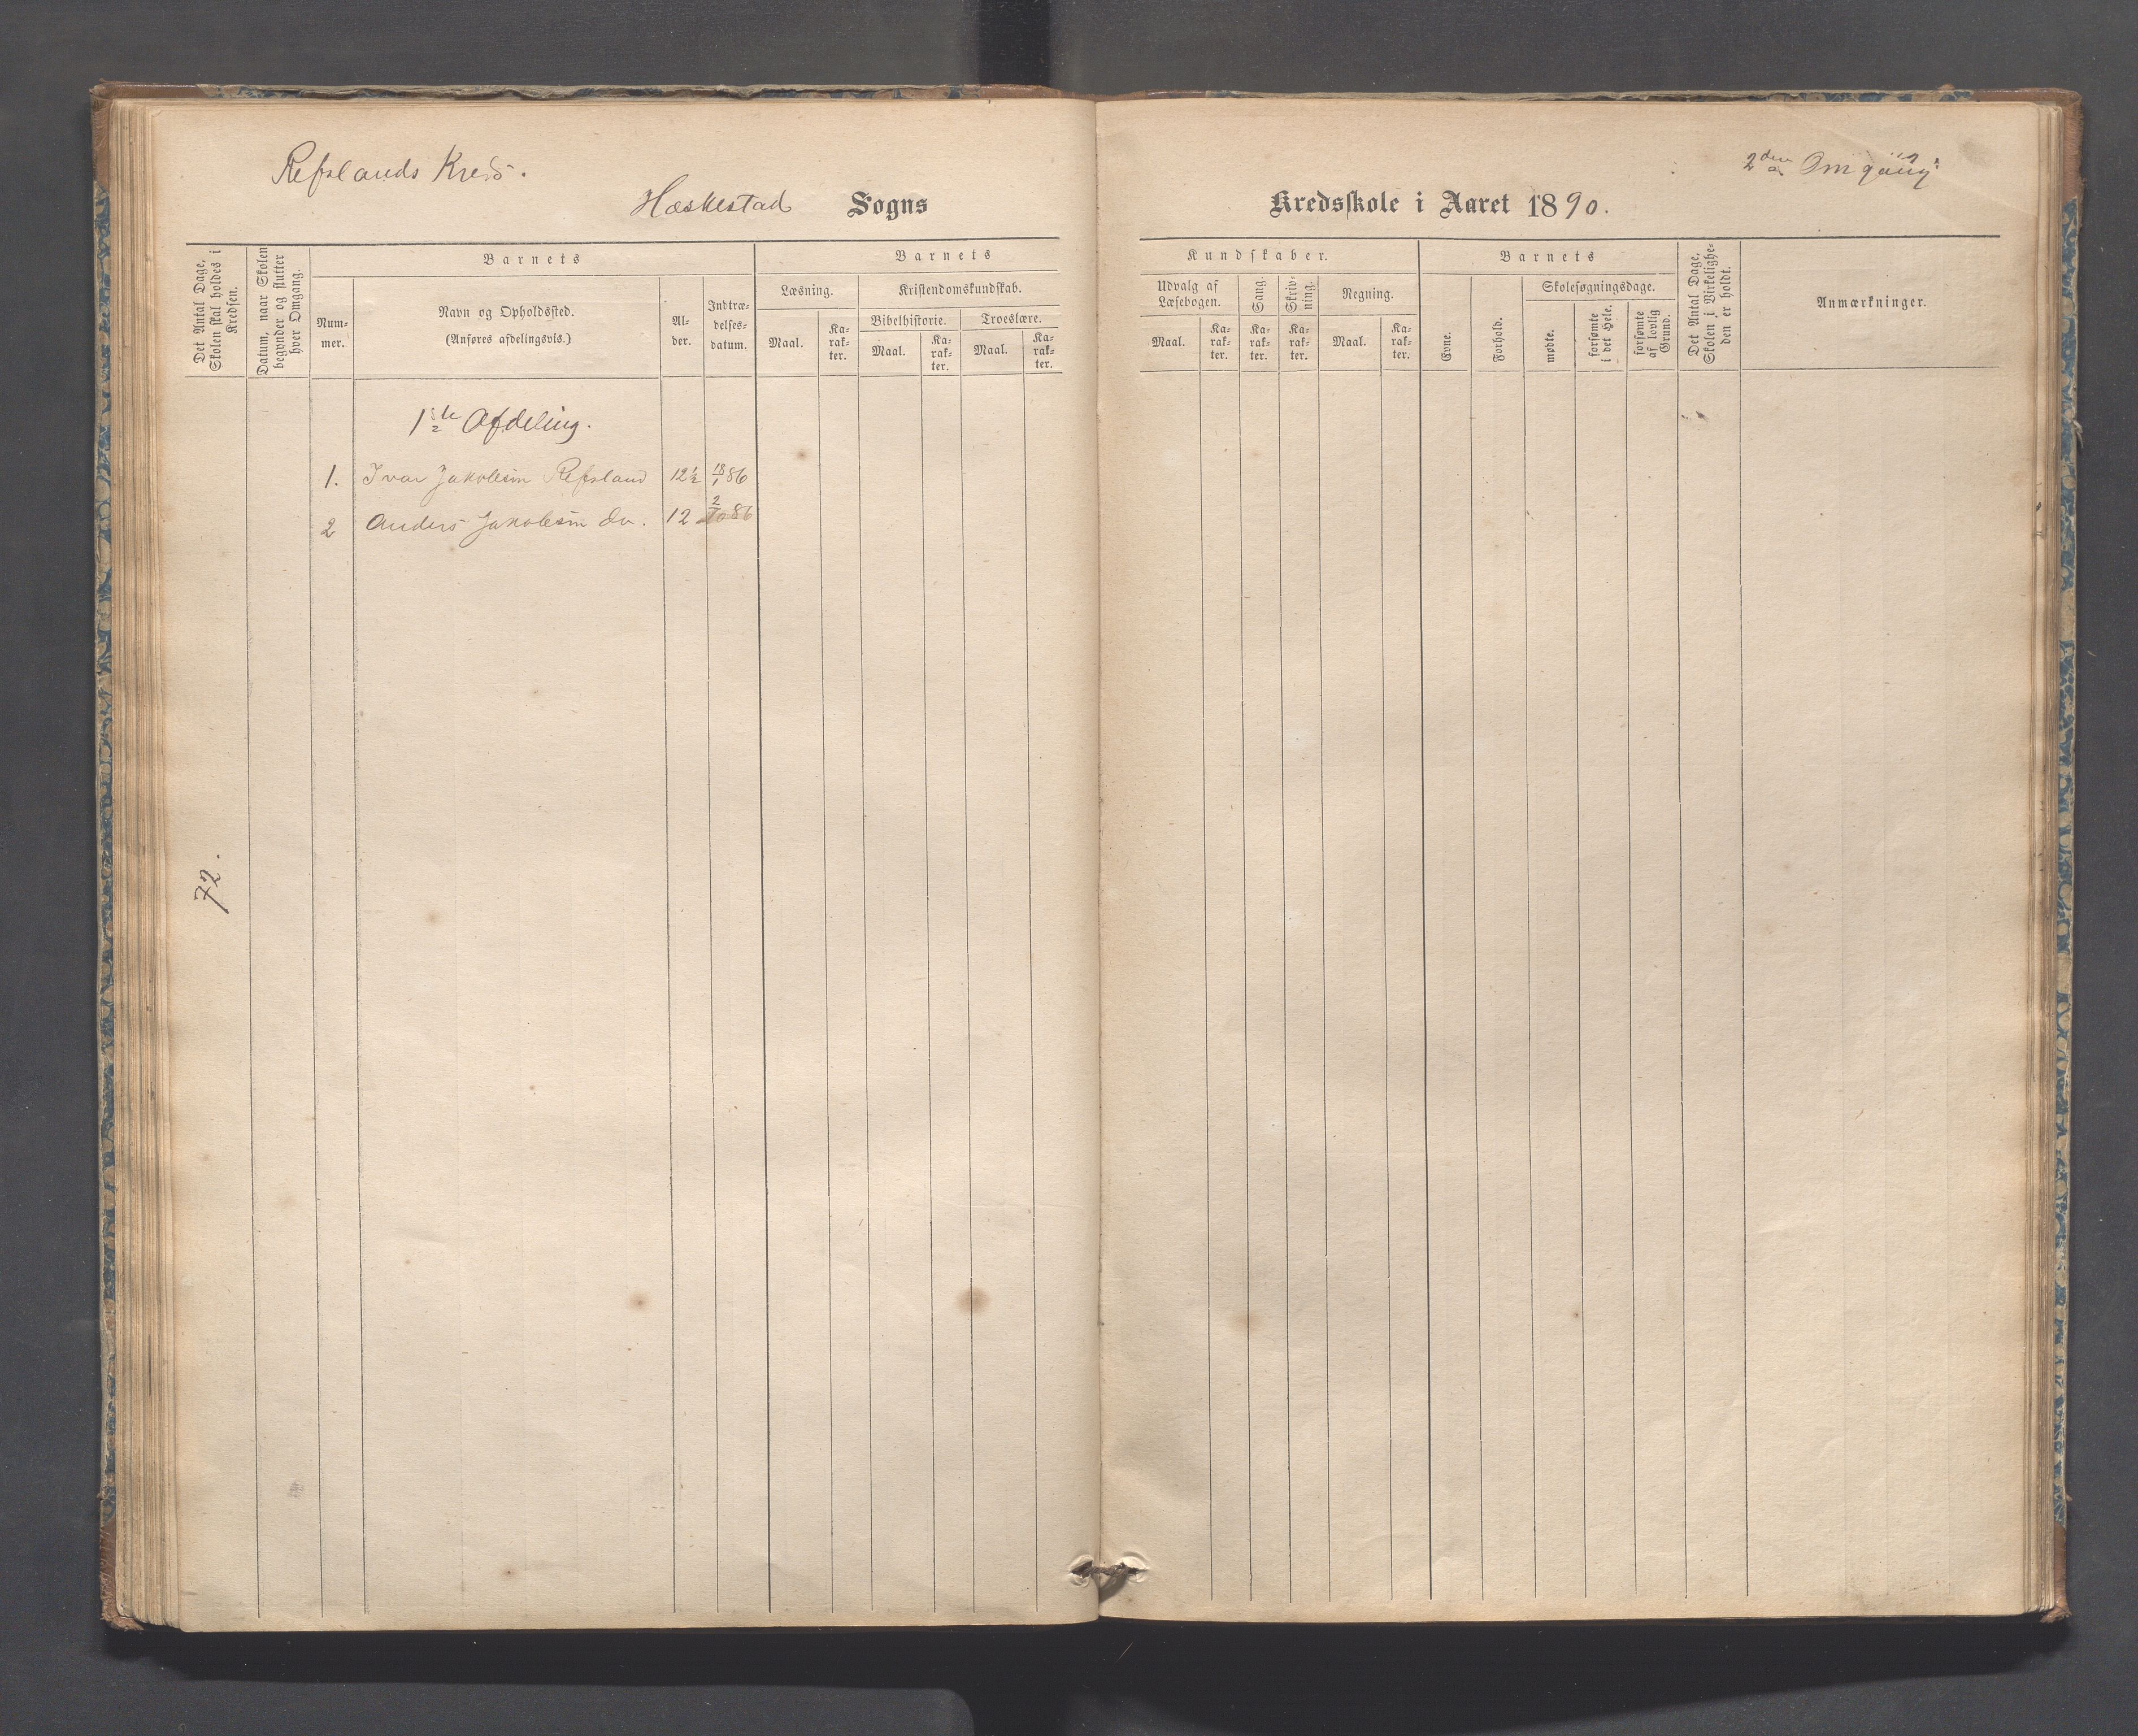 Refslands Kreds.
Hæskestad Sogns
2den Omgang
Kredsskole i Aaret 1890.
Det Antal Dage, Skolen skal holdes i Kredsen.
Datum, naar Skolen begynder og slutter hver Omgang.
Barnets
Num-
mer.
Navn og Opholdssted.
(Anføres afdelingsvis.)
Al-
der.
Indtræ-
delses-
datum.
Barnets
Læsning.
Maal.
Ka-
rak-
ter.
Kristendomskundskab.
Bibelhistorie.
Maal.
Ka-
rak-
ter.
Troeslære.
Maal.
Ka-
rak-
ter.
Kundskaber.
Udvalg af
Læsebogen.
Maal.
Ka-
rak-
ter.
Sang.
Ka-
rak-
ter.
Skriv-
ning.
Ka-
rak-
ter.
Regning.
Maal.
Ka-
rak-
ter.
Barnets
Evne.
Forhold.
Skolesøgningsdage.
mødte.
forsømte
i det Hele.
forsømte
af lovlig
Grund.
Det Antal Dage,
Skolen i Virkelighe-
den er holdt.
Anmærkninger.
1ste Afdeling.
1. Ivar Jakobsen Refsland 12½ 18/1 86
2 Anders Jakobsen do. 12 2/10 86
72.